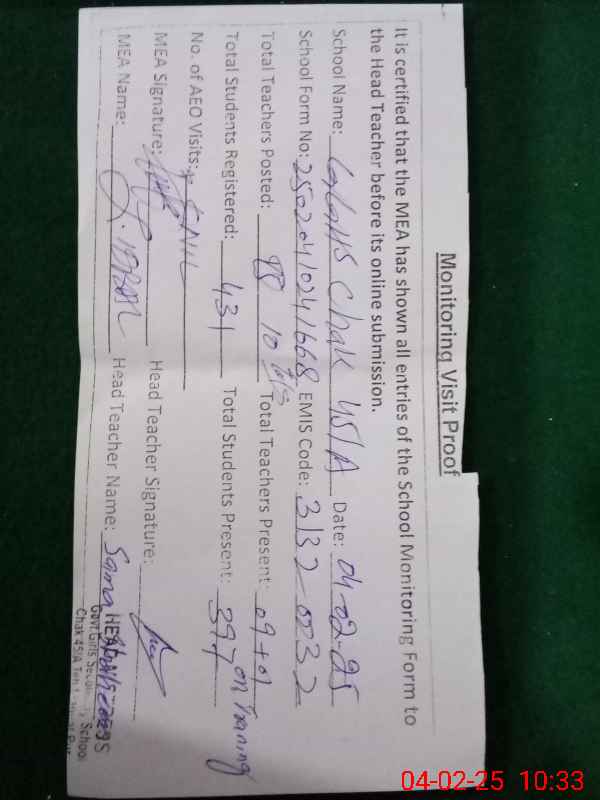 Monitoring Visit Proof
It is certified that the MEA has shown all entries of the School Monitoring Form to
the Head Teacher before its online submission.
School Name: GGHS Chak 45/A Date: 04-02-25
School Form No: 25020410241668 EMIS Code: 3132-0232
Total Teachers Posted: 10 Total Teachers Present: 09+01 on Training
Total Students Registered: 431 Total Students Present: 397
No. of AEO Visits: NIL
MEA Signature: Head Teacher Signature:
MEA Name: J. IQBAL Head Teacher Name: Saima
HEADMISTRESS
Govt Girls Secondary School
Chak 45/A
04-02-25 10:33